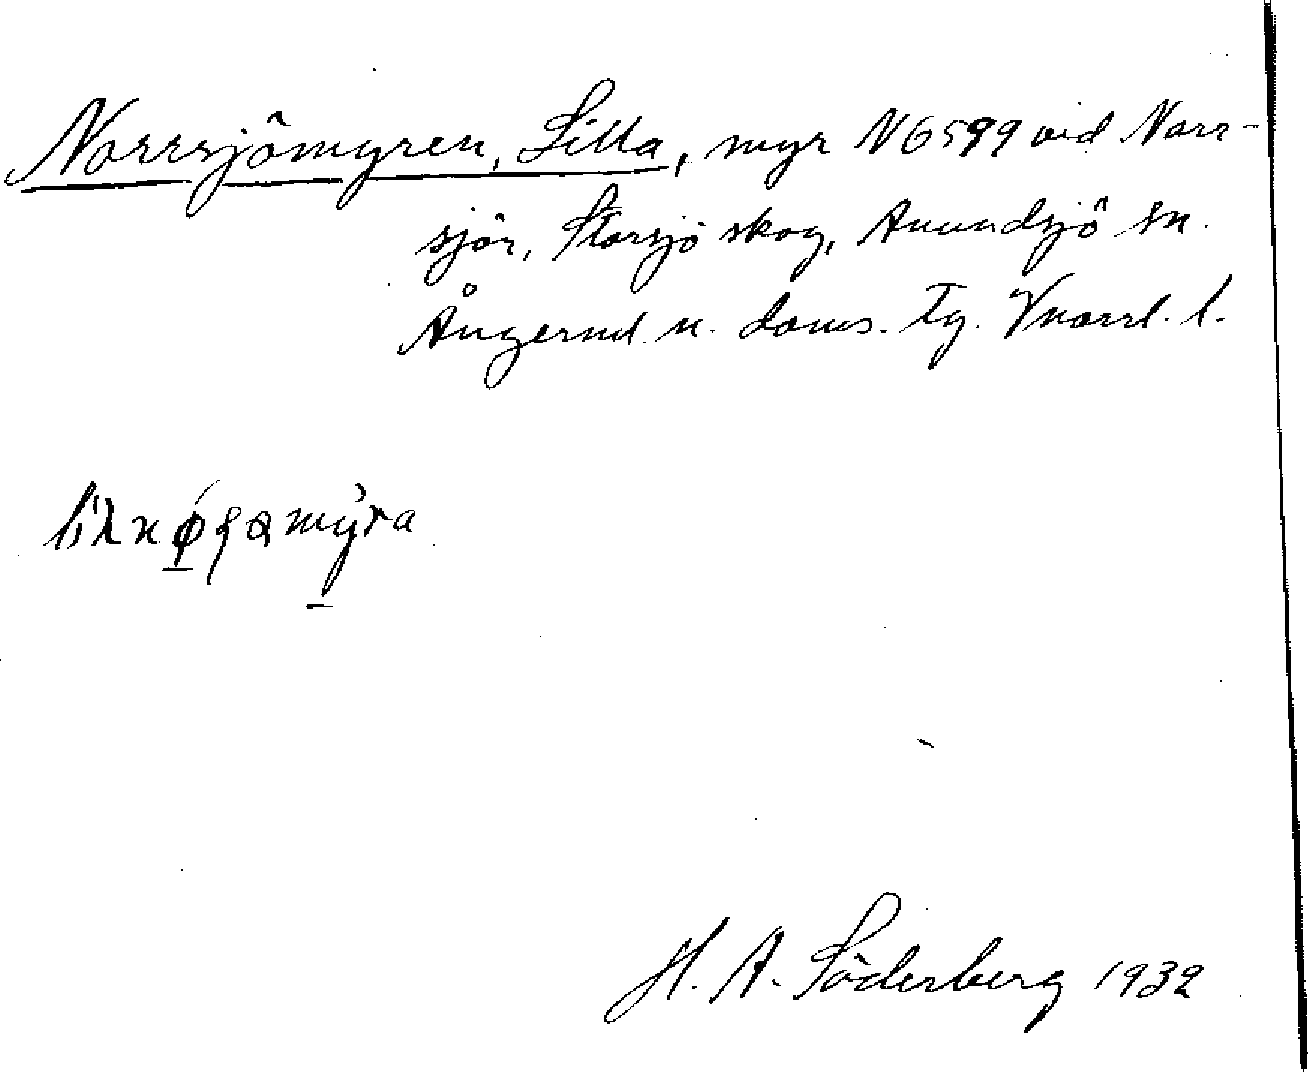 Norrsjömyren, Lilla, myr N 6599 vid Norr-
sjön, Storsjö skog, Anundsjö sn.
Ångerml. n. doms. tg. Vnorrl. l.
H. A. Söderberg 1932